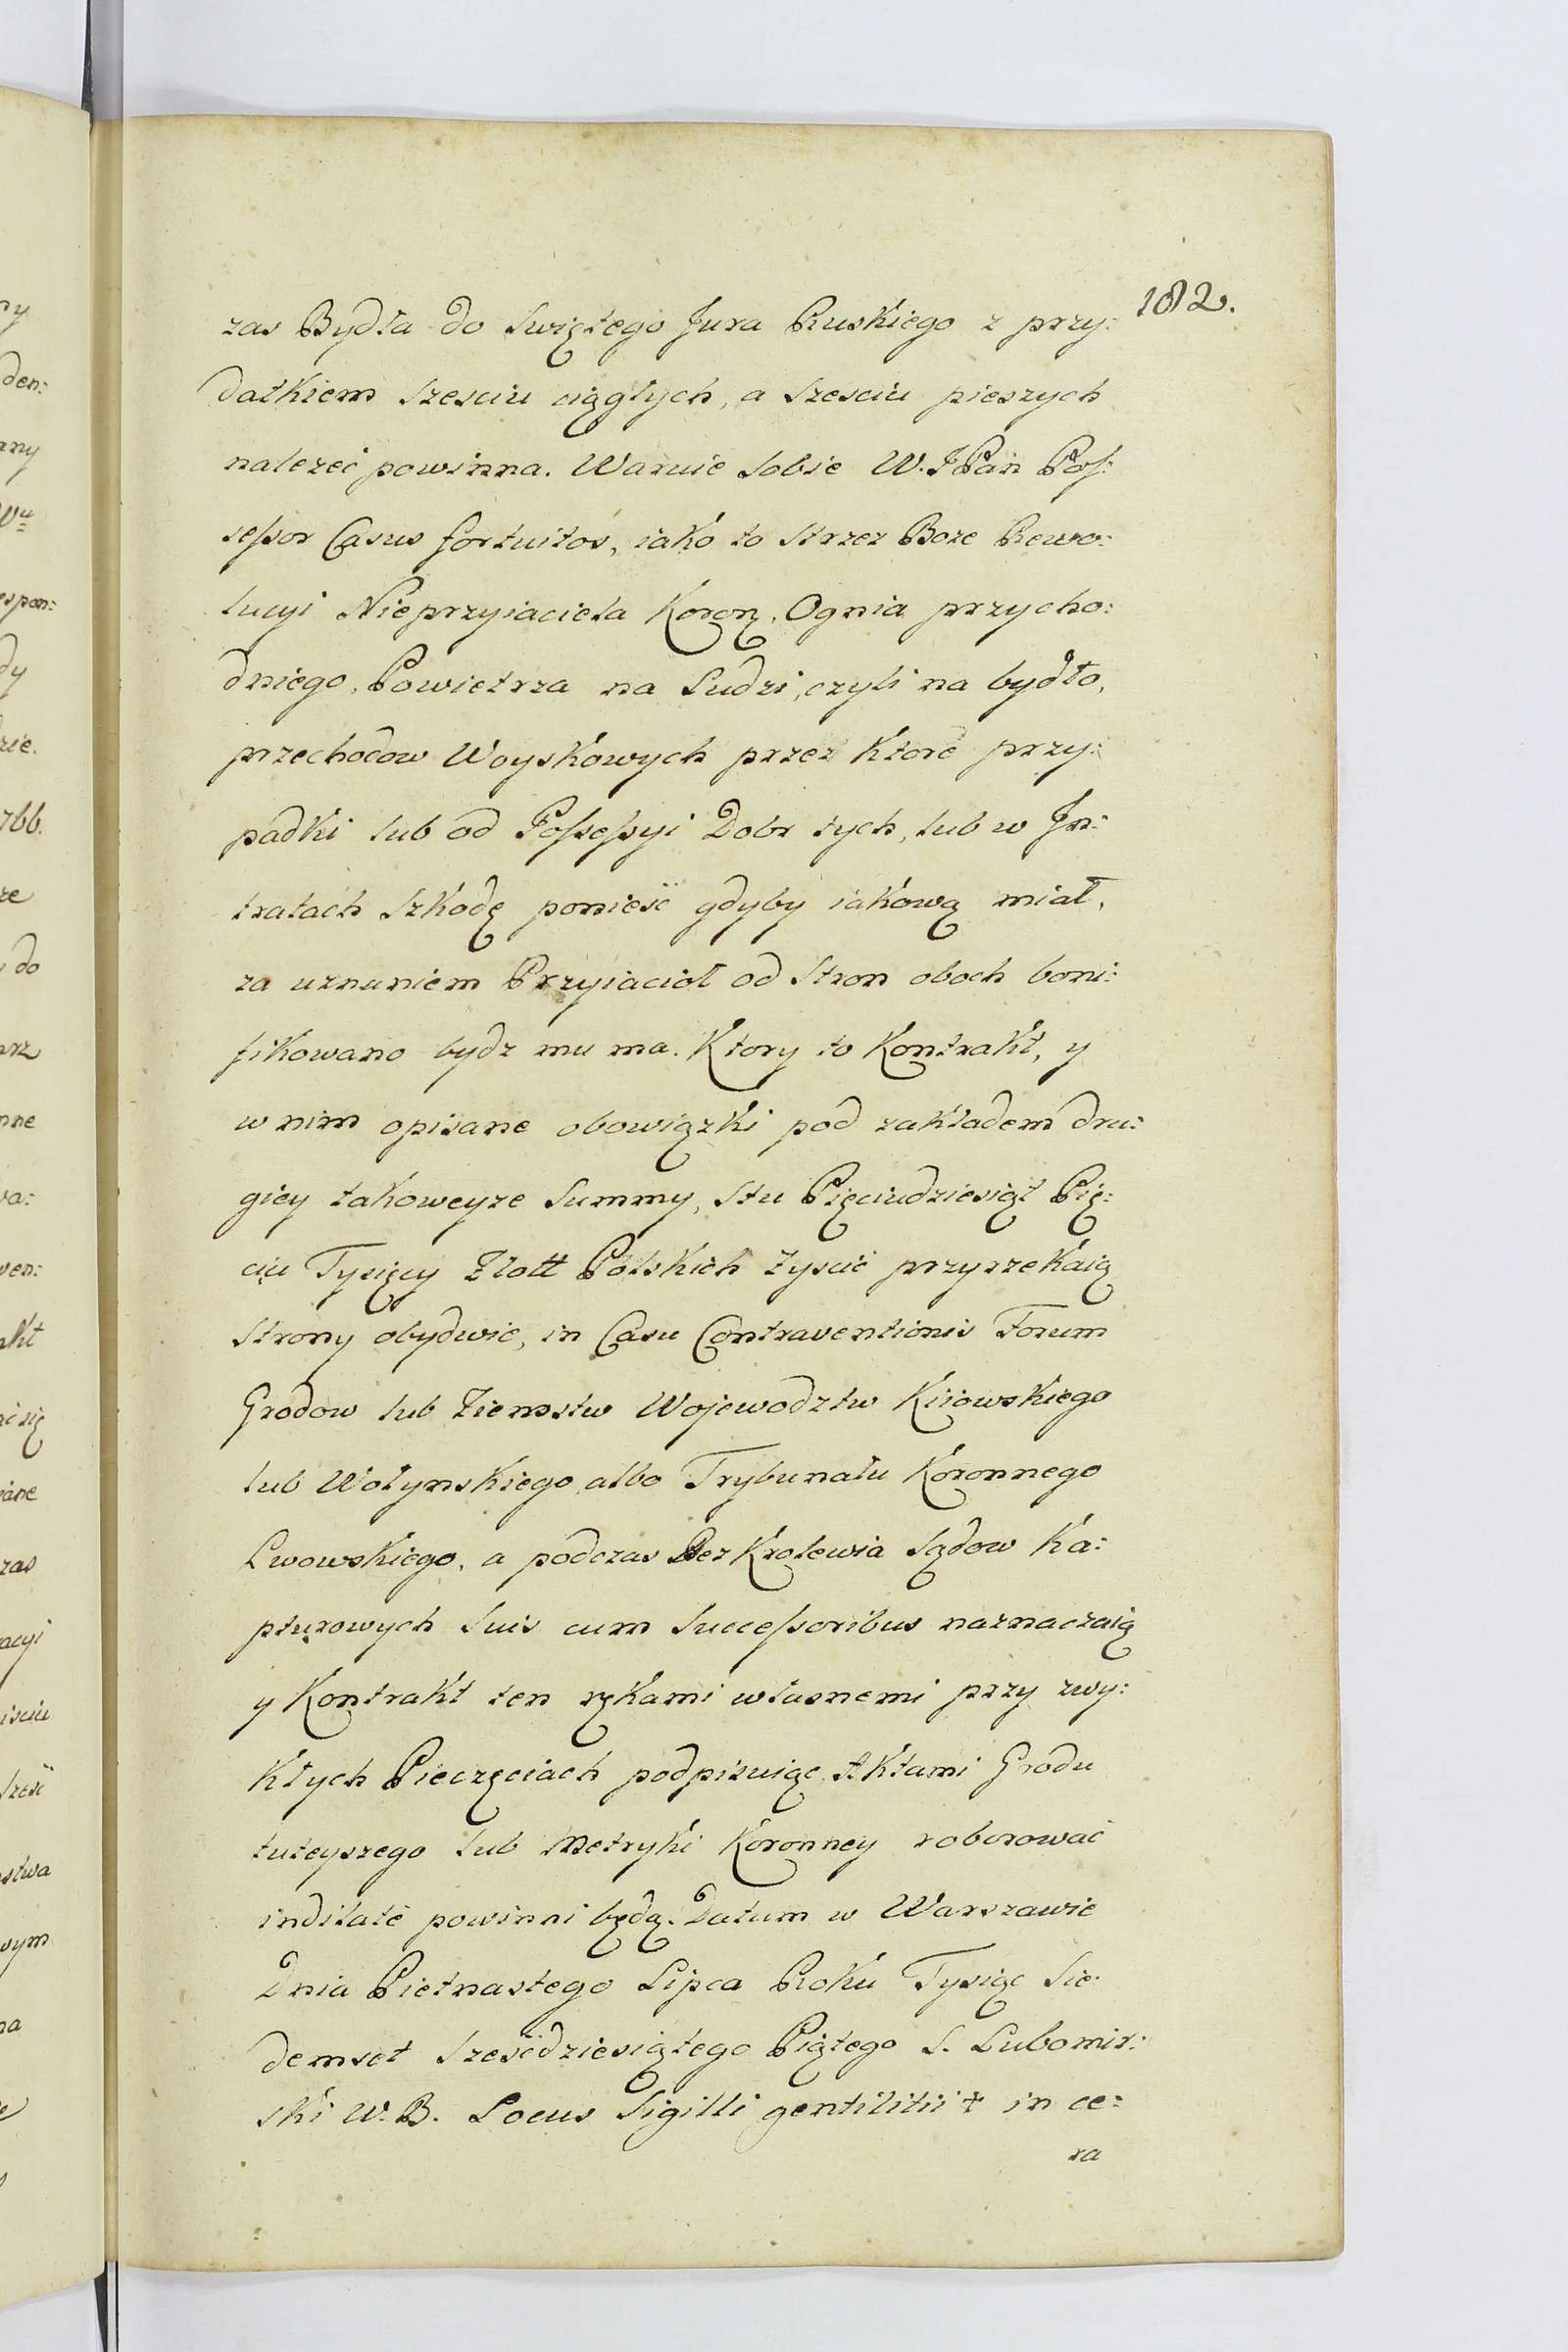 182.
zas Bydła do Swiętego Jura Ruskiego z przy:
datkiem Szesciu ciągłych, a Szesciu pieszych
nalezeć powinna. Waruie Sobie W. JPan Pos:
sessor Casus fortuitos, iako to Strzez Boze Rewo:
lucyi Nieprzyiaciela Koron, Ognia przycho:
dniego, Powietrza na Ludzi, czyli na bydło,
przechodow Woyskowych przez ktore przy:
padki lub od Possessyi Dobr tych, lub w In:
tratach Szkodę ponieść gdyby iakową miał,
za uznaniem Przyiacioł od Stron oboch boni:
fikowano bydz mu ma. Ktory to Kontrakt, y
w nim opisane obowiązki pod zakładem dru:
giey takoweyze Summy, Stu Pięciudziesiąt Pię:
ciu Tysięcy Złott Polskich zyscić przyrzekaią
Strony obydwie, in Casu Contraventionis Forum
Grodow lub Ziemstw Wojewodztw Kiiowskiego
lub Wołynskiego albo Trybunału Koronnego
Lwowskiego, a podczas Bez Krolewia Sądow Ka:
pturowych Suis cum Successoribus naznaczaią
y Kontrakt ten rękami własnemi przy zwy:
kłych Pieczęciach podpisuiąc Aktami Grodu
tuteyszego lub Metryki Koronney roborować
indilatè powinni będą. Datum w Warszawie
Dnia Pietnastego Lipca Roku Tysiąc Sie:
demset Sześćdziesiątego Piątego S. Lubomir:
ski W. B. Locus Sigilli gentilitii + in ce:
ra
ny
den:
any
Wu
espon:
dy
zie.
766.
ze
do
arz
nne
va:
wen:
akt
ać się
iane
zas
acyi
iściu
Sześć
stwa
wym
na